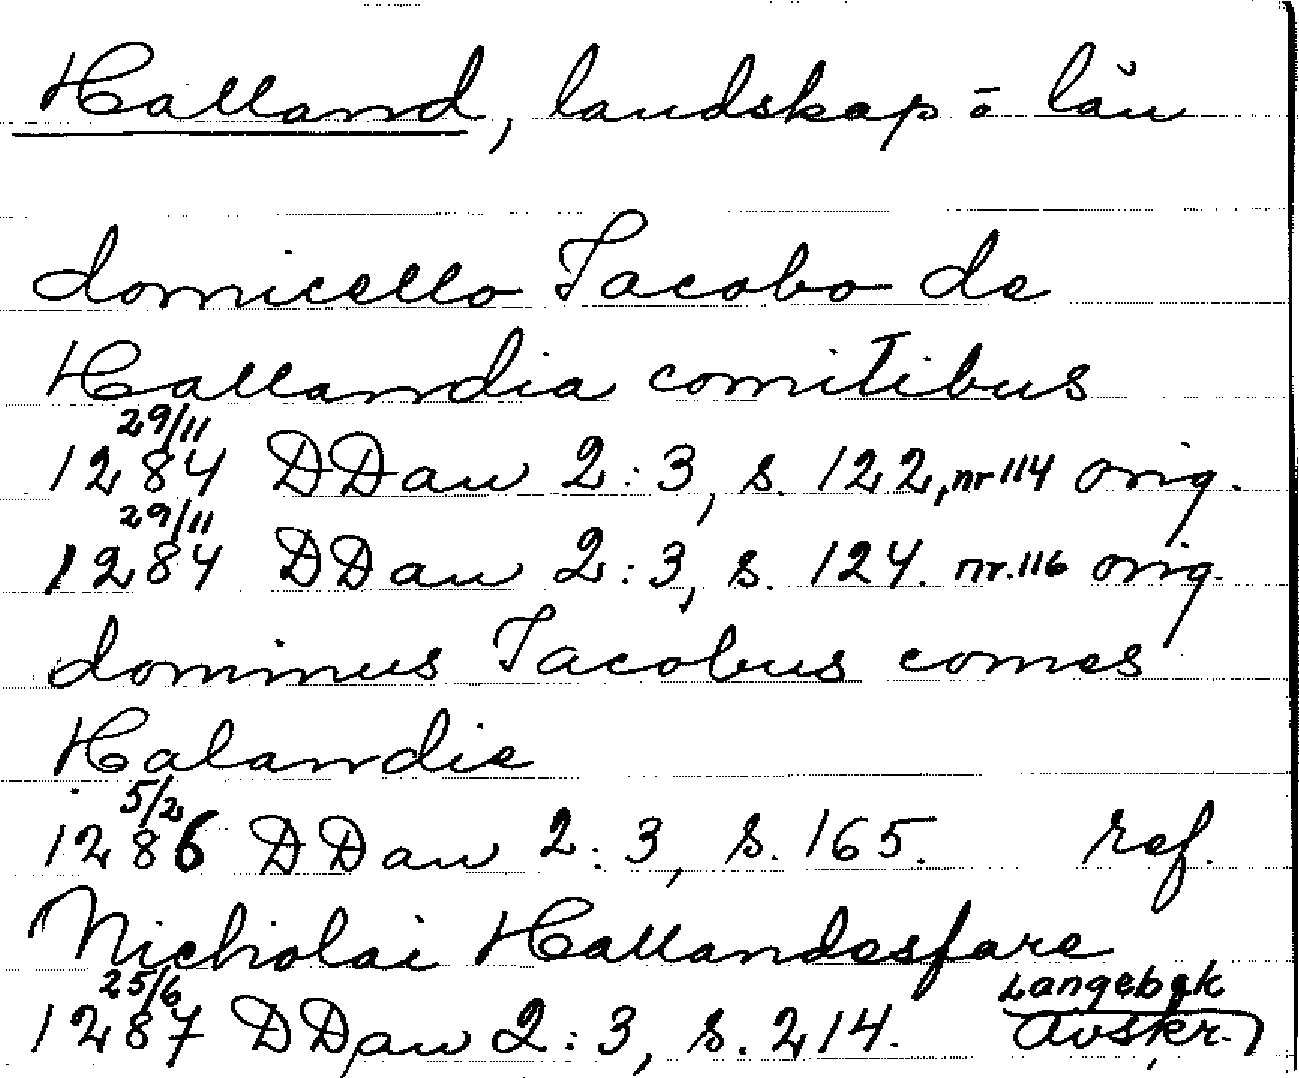 Halland, landskap o län
domicello Jacobo de
Hallandia comitibus
29/11
1284 DDan 2:3, s. 122, nr 114 orig.
29/11
1284 DDan 2:3, s. 124. nr. 116 orig.
dominus Jacobus comes
Halandie
5/2
1286 DDan 2:3, s. 165. ref.
Nicholai Hallandesfare
25/6 Langebek
1287 DDan 2:3, s. 214. avskr.